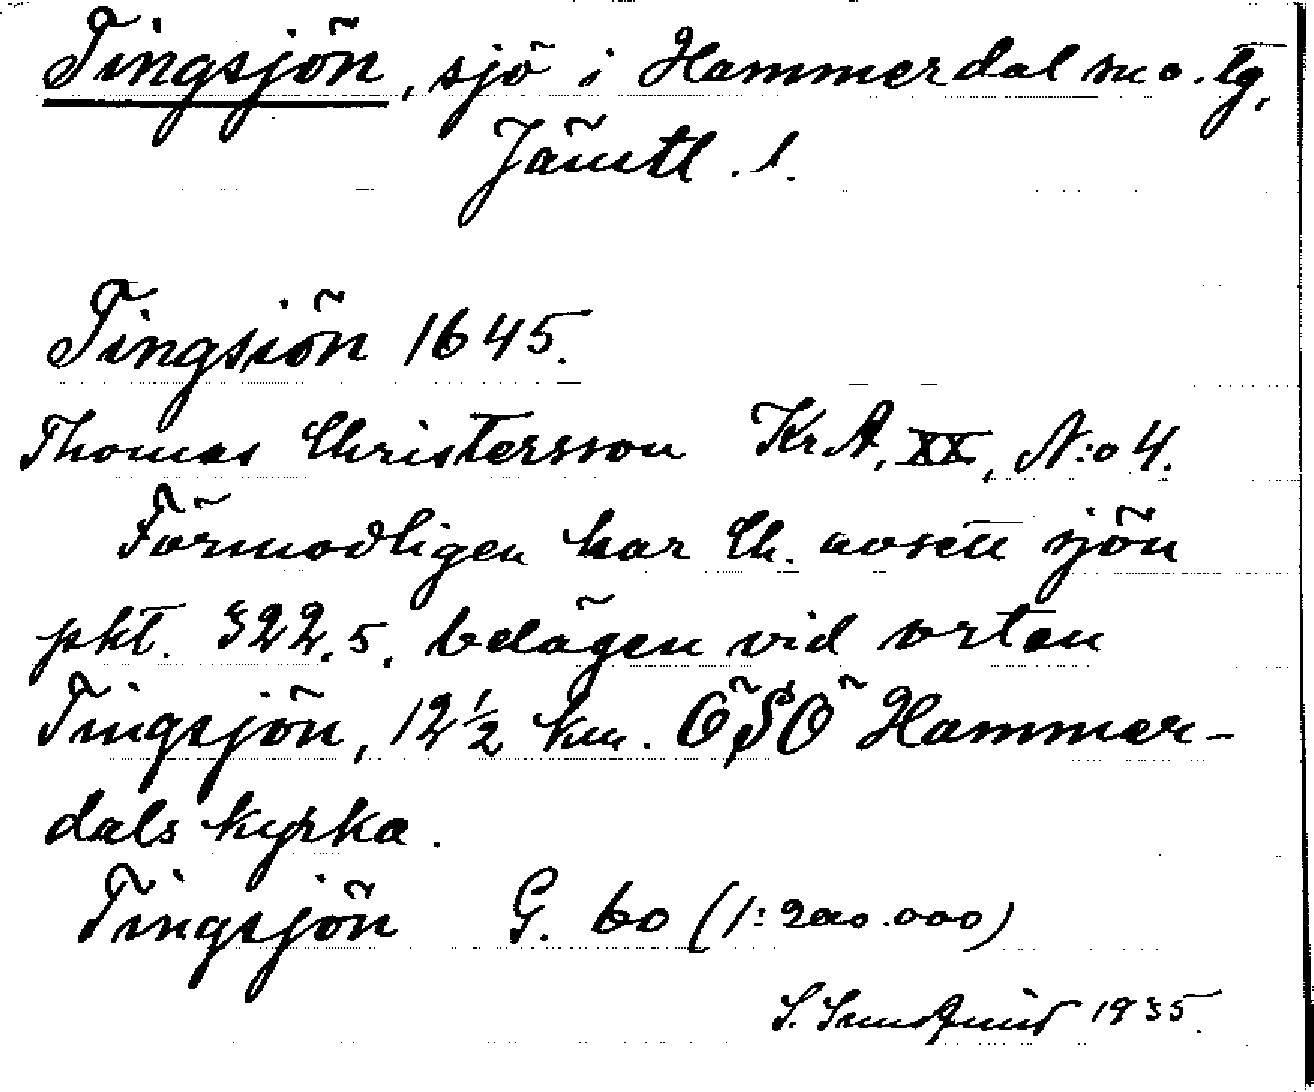 Tingsjön, sjö i Hammerdal sn o. tg,
Jämtl. l.
Tingsiön 1645.
Thomas Christersson KrA, XX, N:o 4.
Förmodligen har Ch. avsett sjön
pkt. 322,5, belägen vid orten
Tingsjön, 12 1/2 km. ÖSÖ Hammer-
dals kyrka.
Tingsjön G. 60 (1:200.000)
S. 1935.